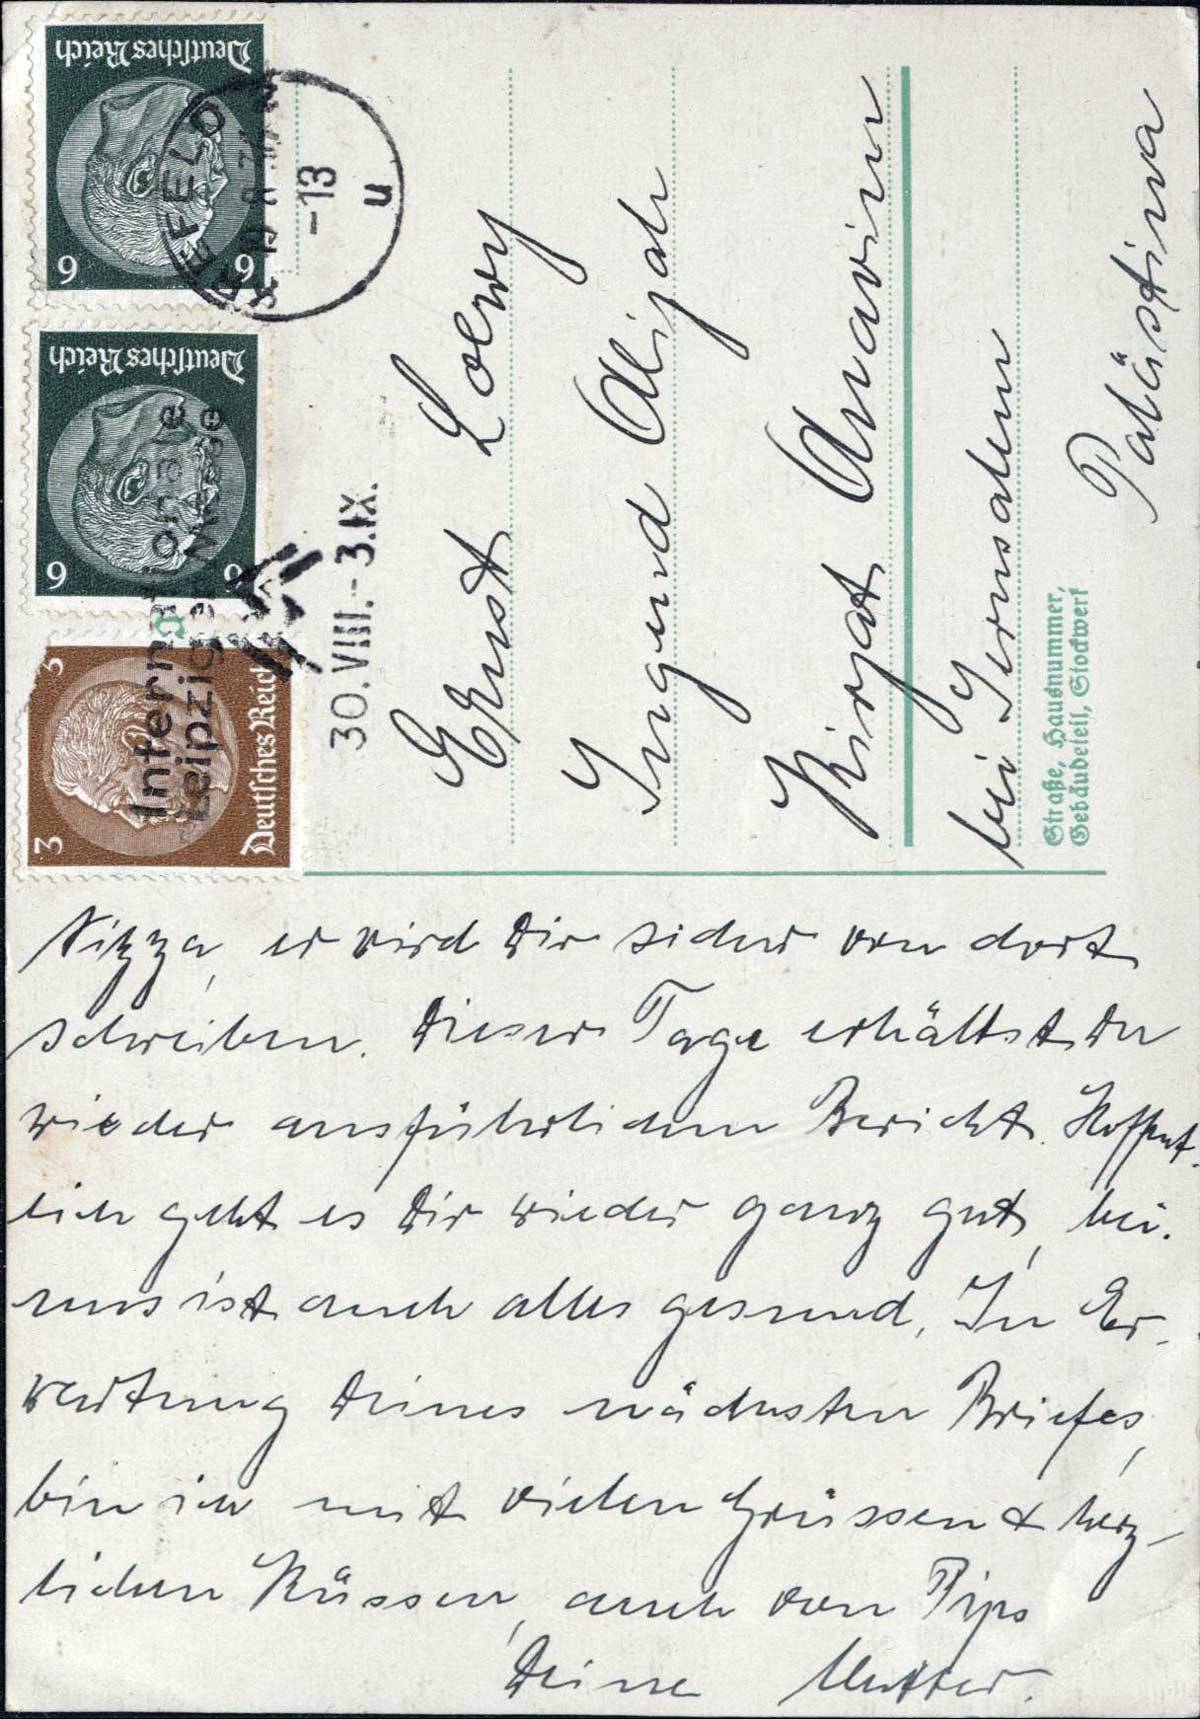 Deutsches Reich
6 6
Deutsches Reich
6 6
Deutsches Reich
3 3
KREFELD
-13
u
Internationale
Leipziger Messe
30.VIII.-3.IX.
Ernst Loewy
Jugend Alijah
Kirjat Anavim
bei Jerusalem
Palästina
Straße, Hausnummer,
Gebäudeteil, Stockwerk
Nizza, er wird Dir sicher von dort
schreiben. Dieser Tage erhältst Du
wieder ausführlichen Bericht. Hoffent-
lich geht es Dir wieder ganz gut, bei
uns ist auch alles gesund. In Er-
wartung Deines nächsten Briefes,
bin ich mit vielen Grüssen & herz-
lichen Küssen, auch von Pips
Deine Mutter.